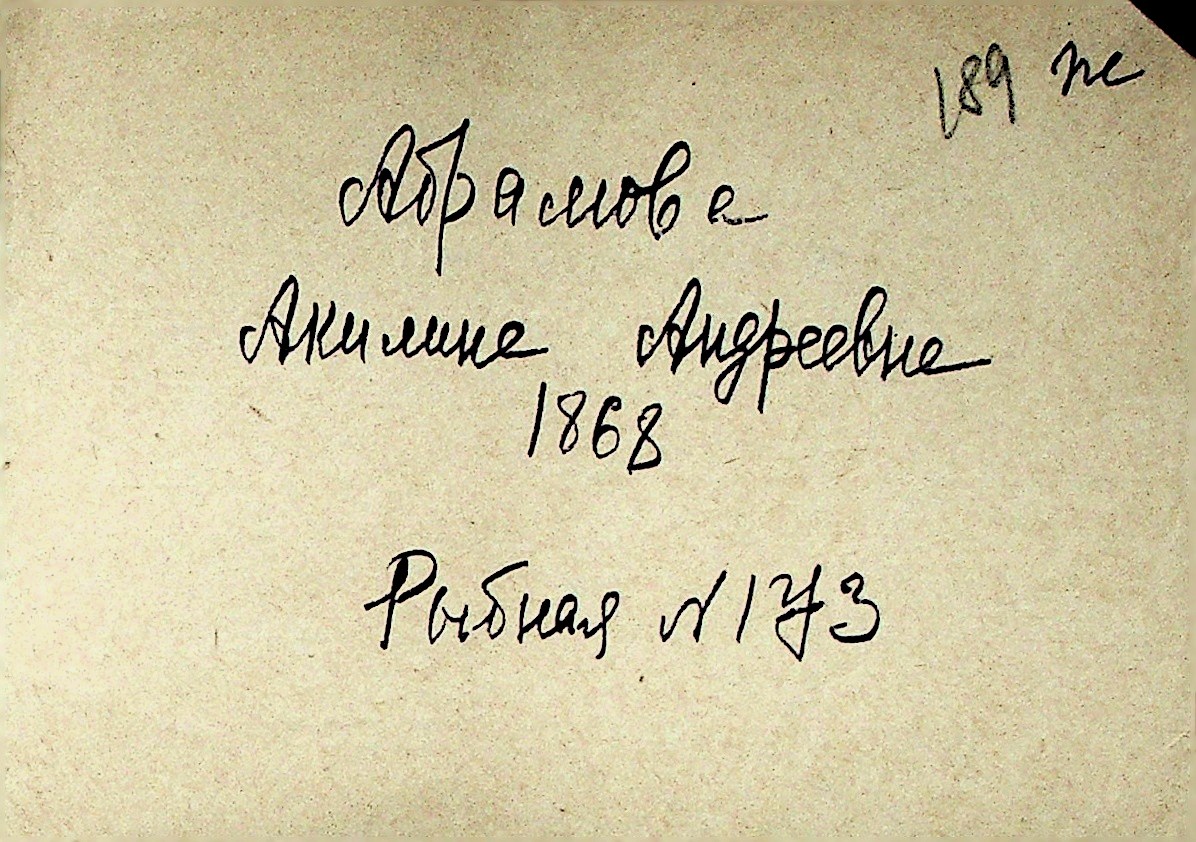 189 же
Абрамова
Акилина Андреевна
1868
Рыбная N 173